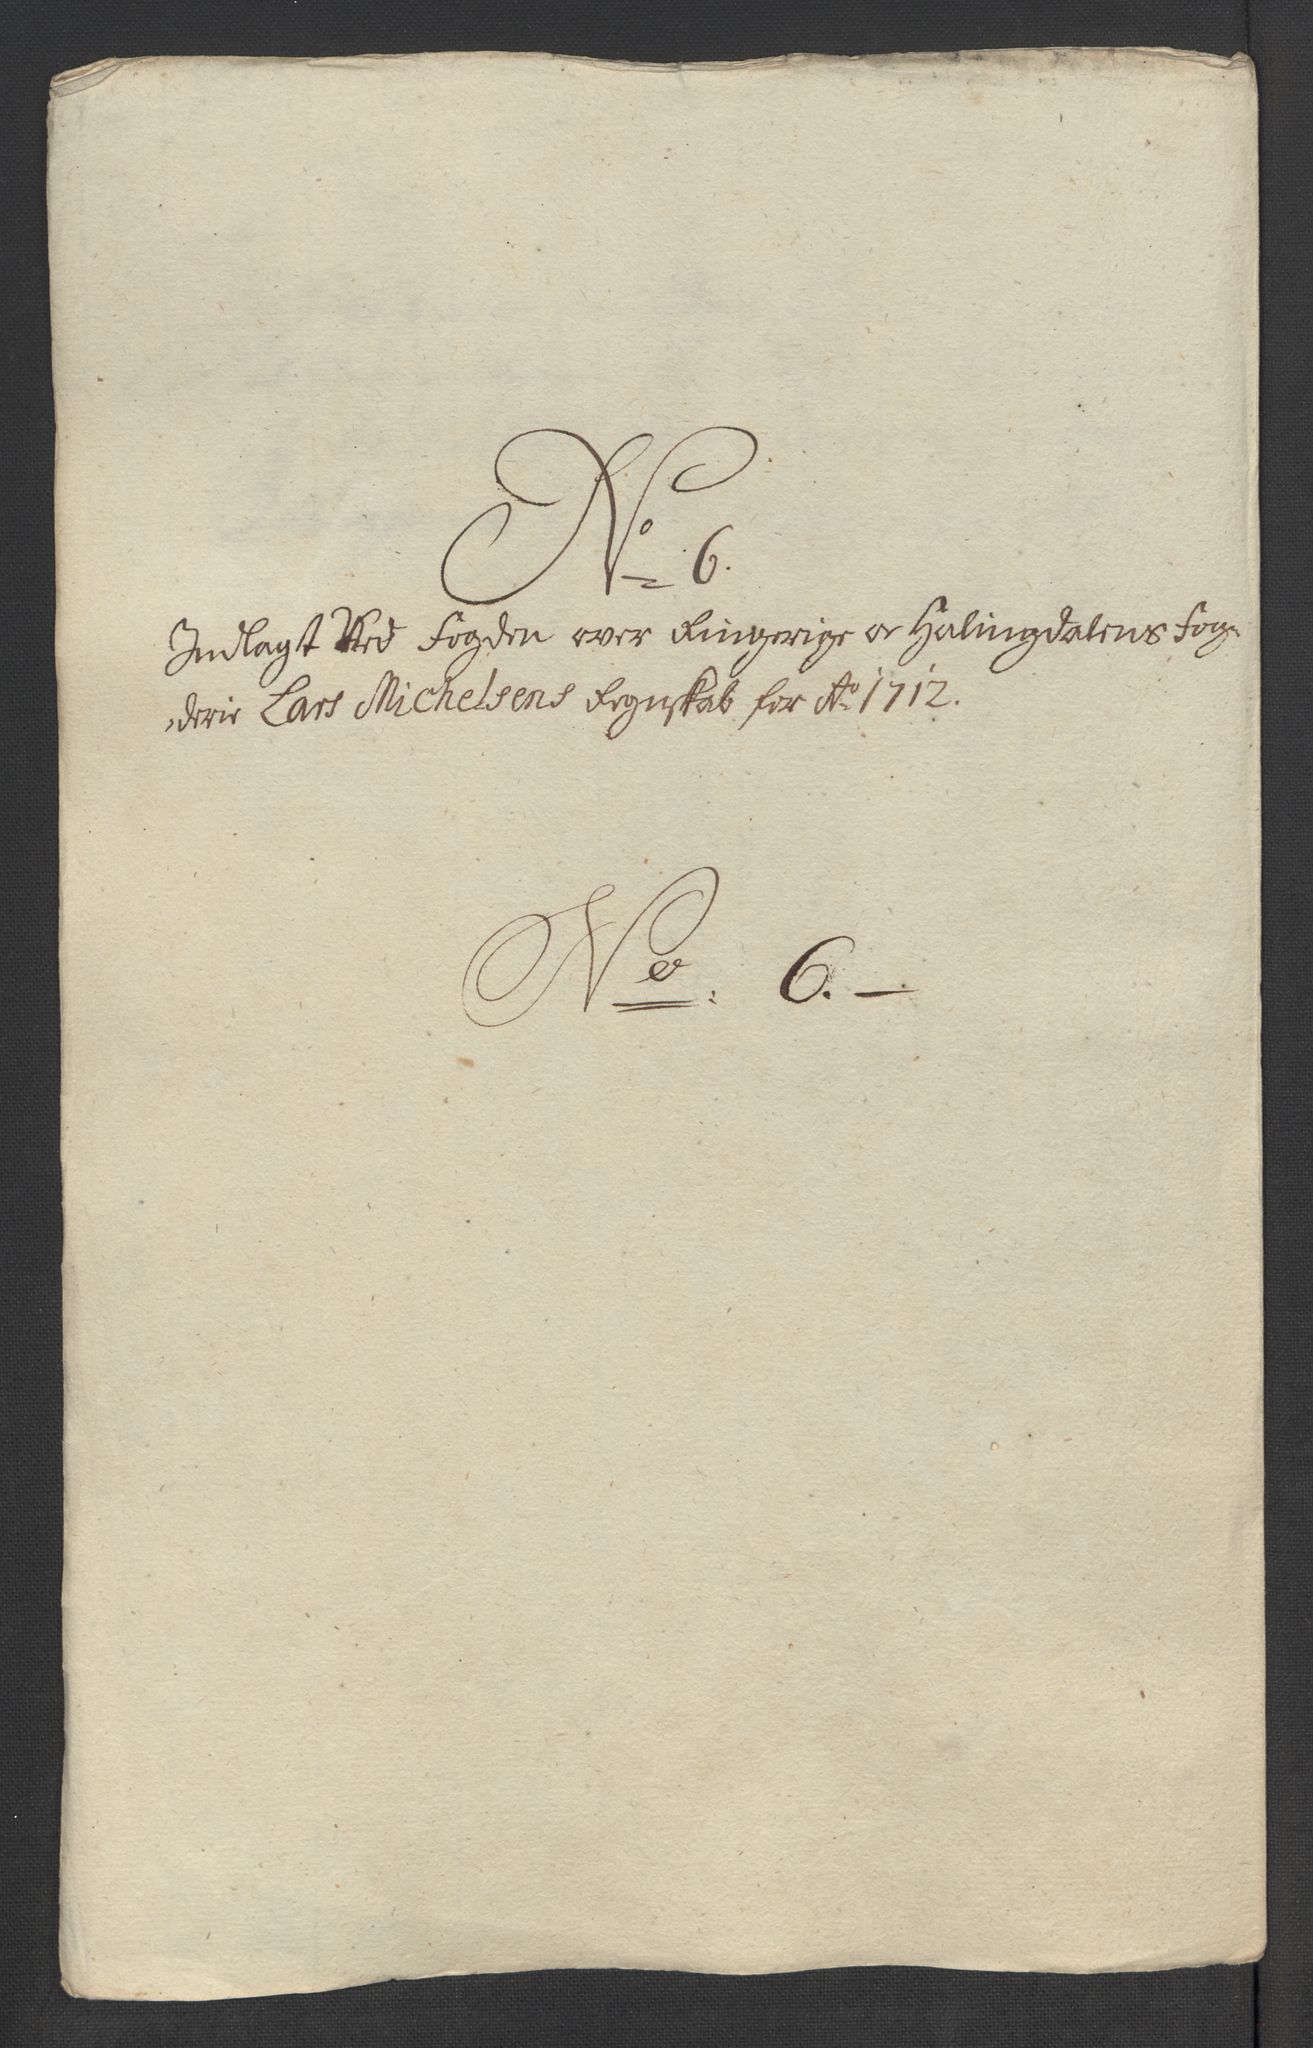 No 6.
Indlagt Ved Fogden over Ringerige oc Halingdalens Fog-
derie Lars Michelsens Regnskab for Ao 1712.
No: 6. —